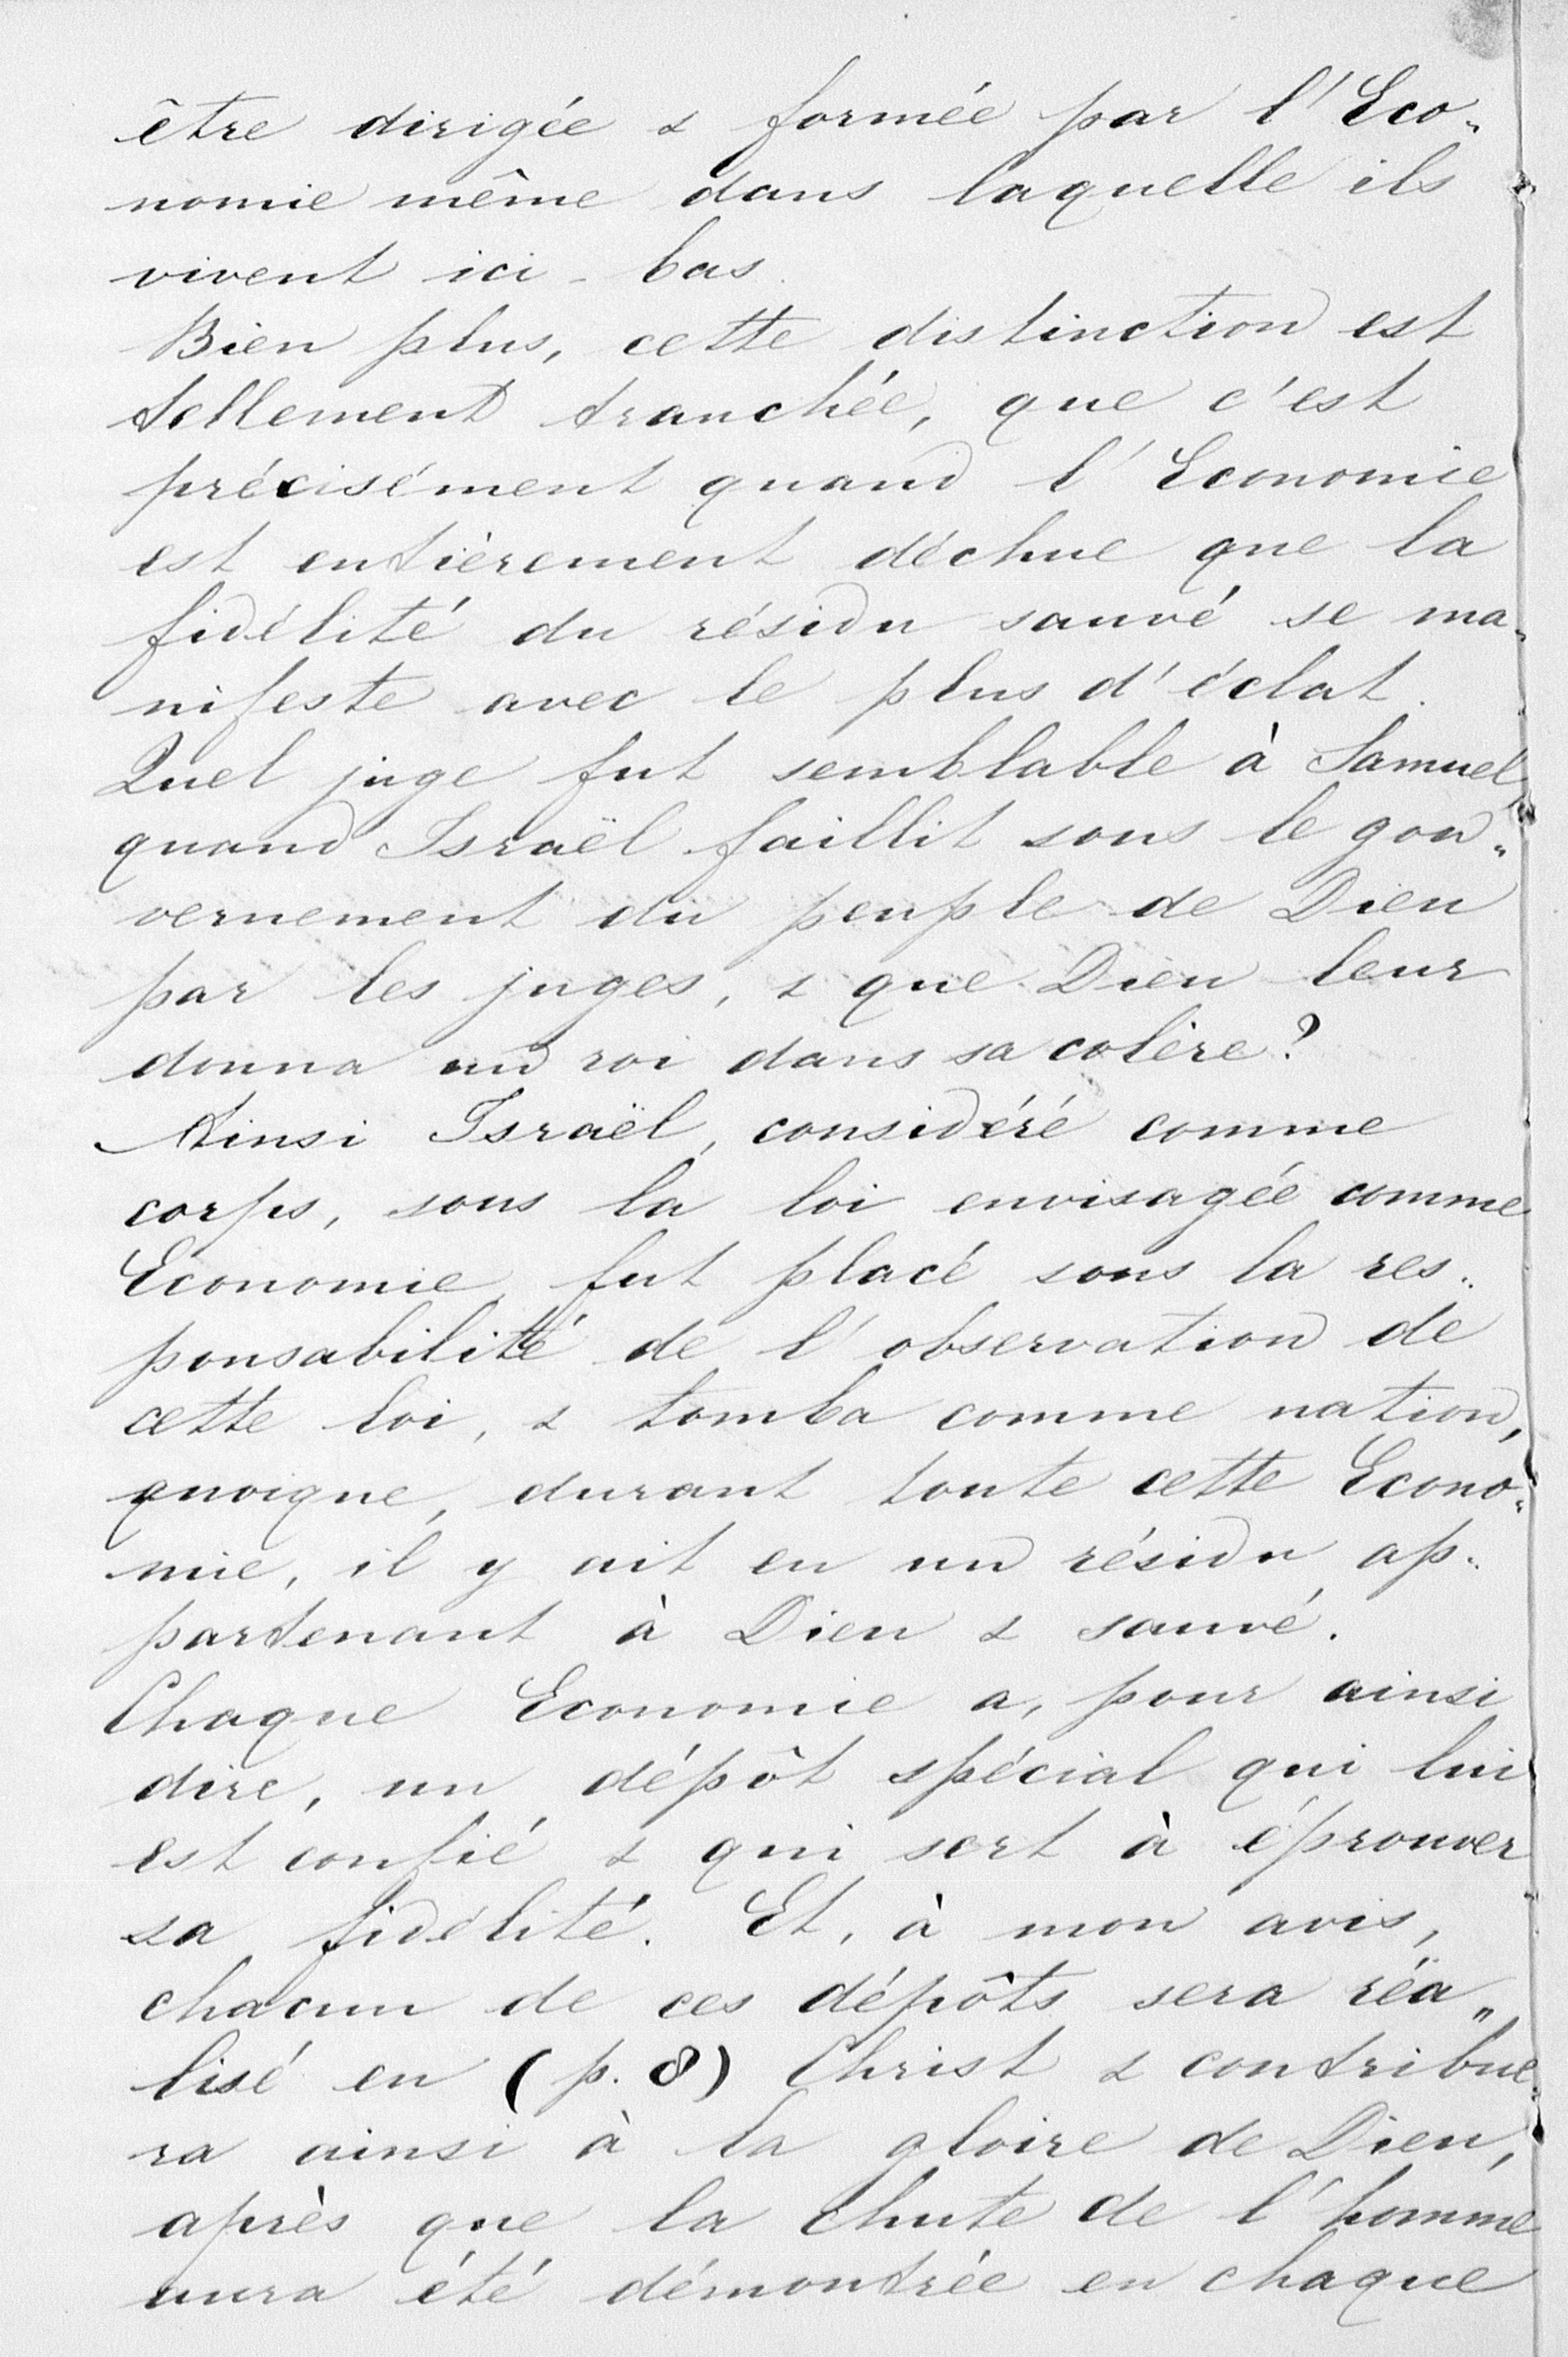 être dirigée & formée par l'Eco-
nomie même dans laquelle ils
vivent ici-bas.
Bien plus, cette distinction est
tellement tranchée, que c'est
précisément quand l'Economie
est entièrement déchue que la
fidélité du résidu sauvé se ma-
nifeste avec le plus d'éclat.
Quel juge fut semblable à Samuel
quand Israël faillit sous le gou-
vernement du peuple de Dieu
par les juges, & que Dieu leur
donna un roi dans sa colère?
Ainsi Israël, considéré comme
corps, sous la loi envisagée comme
Economie, fut placé sous la res-
ponsabilité de l'observation de
cette loi, & tomba comme nation,
quoique, durant toute cette Econo-
mie, il y ait eu un résidu ap-
partenant à Dieu & sauvé.
Chaque Economie a, pour ainsi
dire, un dépôt spécial qui lui
est confié & qui sert à éprouver
sa fidélité. Et, à mon avis,
chacun de ces dépôts sera réa-
lisé en (p. 8) Christ & contribue-
ra ainsi à la gloire de Dieu,
après que la chute de l'homme
aura été démontrée en chaque